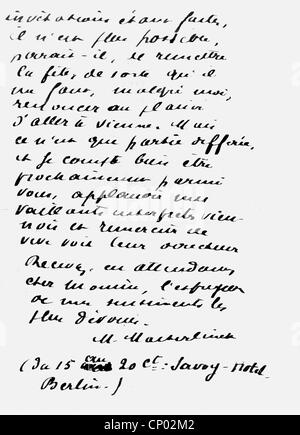 invitations étant faites,
il n'est plus possible,
paraît-il, de remettre
la fête, de sorte qu'il
me faut, malgré moi,
renoncer au plaisir
d'aller à Vienne. Mais
ce n'est que partie différée,
et je compte bien être
prochainement parmi
vous, applaudir mes
vaillants interprètes vien-
nois et remercier de
vive voix leur directeur
Recevez, en attendant,
cher Monsieur, l'expression
de mes sentiments les
plus dévoués.
M. Maeterlinck
(Du 15 au 20 ct: Savoy-Hotel-
Berlin.)
alamy
CP02M2